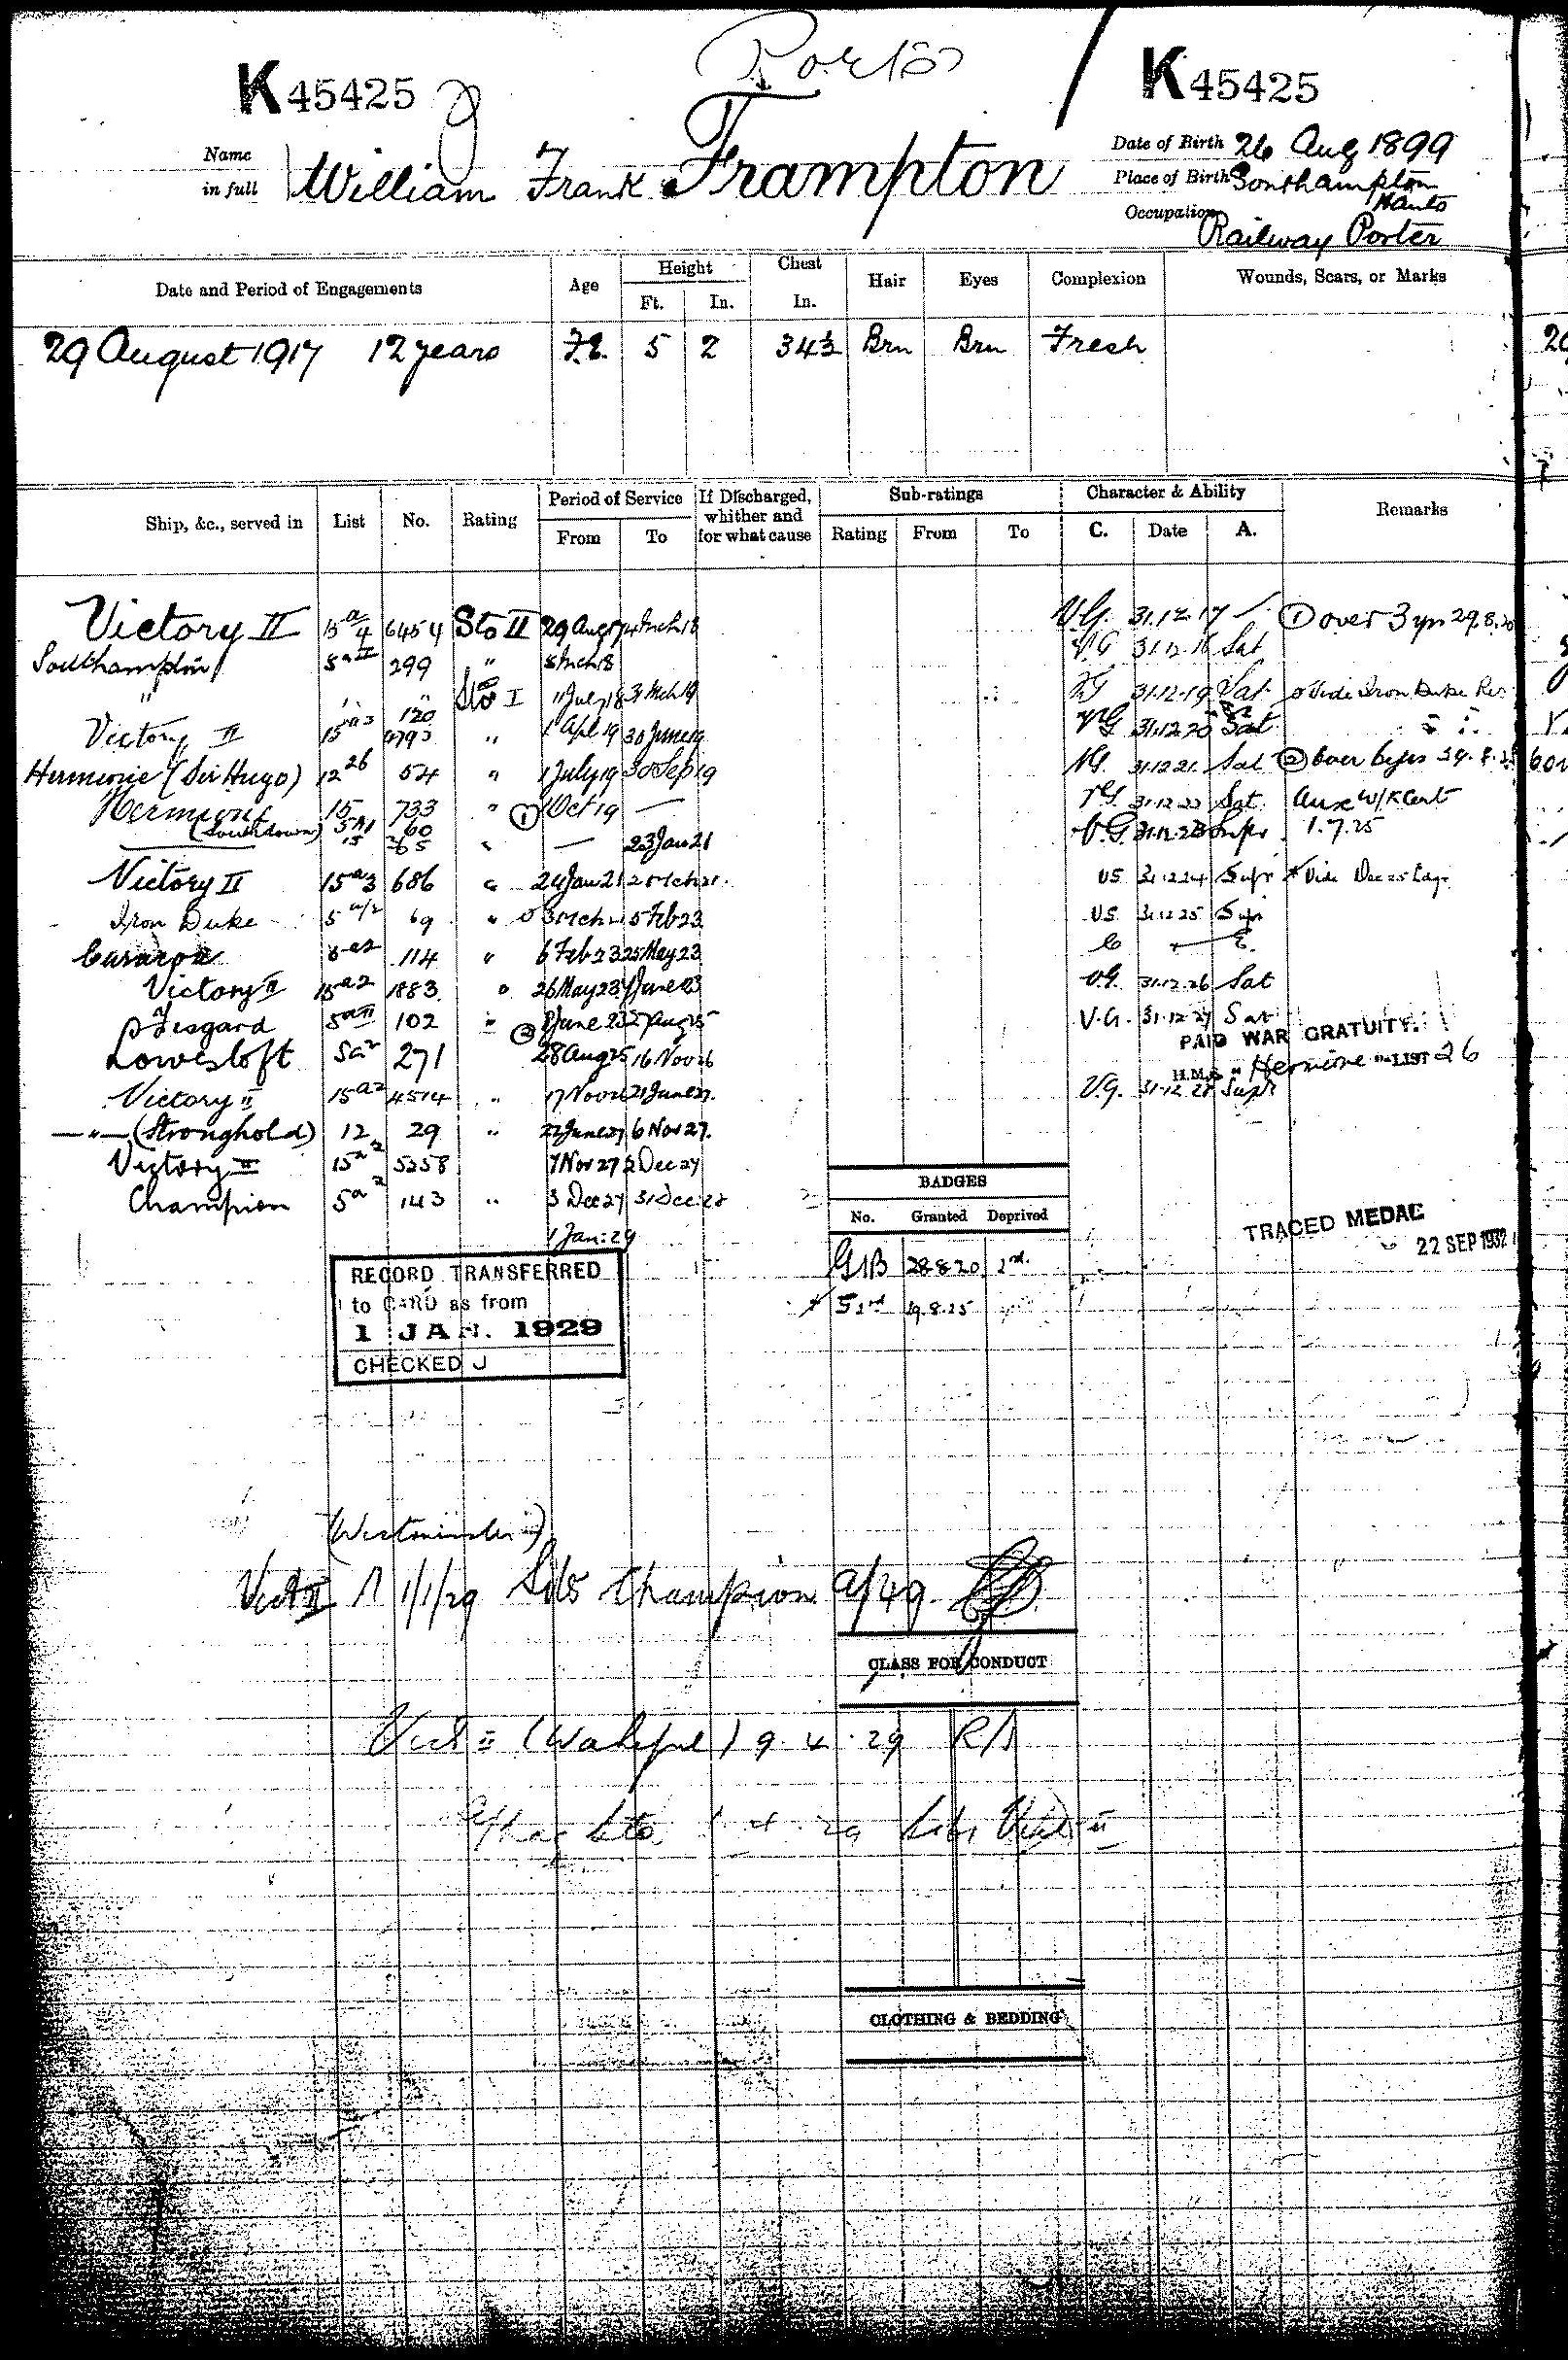 Ports
K 45425
K 45425
Name in full William Frank Frampton
Date of Birth 26 Aug 1899
Place of Birth Southampton Hants
Occupation Railway Porter
Date and Period of Engagements Age Height Ft. In. Chest In. Hair Eyes Complexion Wounds, Scars, or Marks
29 August 1917 12 years 5 2 34½ Brn Brn Fresh
Ship, &c., served in List No. Rating Period of Service From To If Discharged, whither and for what cause Sub-ratings Rating From To Character & Ability C. Date A. Remarks
Victory II 15a/4 6454 Sto II 29 Aug 17 4 Mch 18 V.G. 31.12.17 ① over 3 yrs 29.8.20
Southampton 5a II 299 " 5 Mch 18 V.G 31.12.18 Sat
" " " Sto I 11 July 18 31 Mch 19 VG 31.12.19 Sat Vide Iron Duke
Victory II 15a3 " 1 Apl 19 30 June 19 VG 31.12.20 Sat
Hermione (Sir Hugo) 12 26 54 " 1 July 19 30 Sep 19 VG. 31.12.21. Sat ② over 6 yrs
Hermione 15 733 " ① 1 Oct 19 — VG 31.12.22 Sat. Aux W/K Cert
(Southdown) 60 — 23 Jan 21 V.G. 31.12.23 Supr 1.7.25
Victory II 15a3 686 " 24 Jan 21 2 Mch 21. VG 31.12.24 Supr * Vide Dec 25
Iron Duke 5a/2 69 " 3 Mch 21 5 Feb 23 VG. 31.12.25 Supr
114 " 6 Feb 23 25 May 23
Victory II 15a2 1883 " 26 May 23 7 June 23 VG. 31.12.26 Sat
Fisgard 5a II 102 " ② 8 June 23 27 Aug 25 V.G. 31.12.27 Sat
PAID WAR GRATUITY.
H.M.S. "Hermione" LIST 26
Lowestoft 5a2 271 28 Aug 25 16 Nov 26
Victory II 15a2 4514 " 17 Nov 26 21 June 27. V.G. 31.12.28 Supr
—"— (Stronghold) 12 29 " 22 June 27 6 Nov 27.
Victory II 15a2 5258 7 Nov 27 2 Dec 27
Champion 5a2 143 " 3 Dec 27 31 Dec: 28
1 Jan: 29
BADGES
No. Granted Deprived
G1B 28.8.20 1st
* 2nd 19.8.25
TRACED MEDAL
22 SEP 1932
RECORD TRANSFERRED
to CARD as from
1 JAN. 1929
CHECKED J
(Westminster)
Vict II 1/1/29 Champion
CLASS FOR CONDUCT
Vict II (Wakeful) 9.4.29
CLOTHING & BEDDING